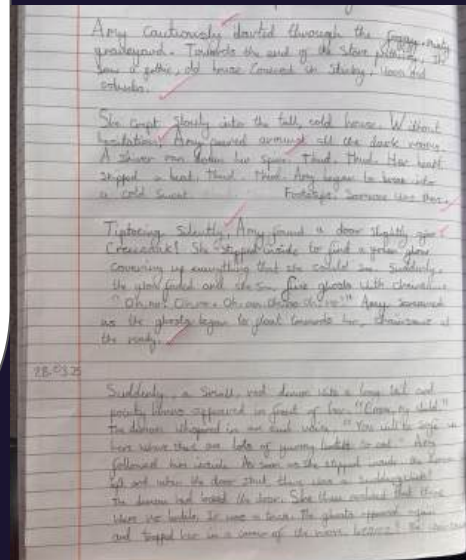 Amy cautiously darted through the foggy, misty
graveyard. Towards the end of the stone pathway, she
saw a gothic, old house covered in sticky, and
cobwebs.
She crept slowly into the tall, cold house. Without
hesitation, Amy around all the dark rooms.
A shiver ran down her spine. Thud. Thud. Her heart
skipped a beat. Thud. Thud. Amy began to break into
a cold sweat. Footsteps. Someone was there.
Tiptoeing silently, Amy found a door slightly ajar.
Creeeaak! She stepped inside to find a green glow
covering up everything that she could see. Suddenly,
the glow faded and she saw five ghosts with chainsaws.
"Oh, no! Oh, no. Oh, no, oh no oh no" Amy screamed
as the ghosts began to float towards her, chainsaws at
the ready.
28.03.25
Suddenly, a small, red demon with a long tail and
pointy horns appeared in front of her. "Come, my child"
The demon whispered in an evil voice. "You will be safe in
here where there are lots of yummy to eat." Amy
followed him inside. As soon as she stepped inside, the demon
left and when the door shut there was a
The demon had locked the door. She then realised that there
were no It was a trap. The ghosts appeared again
and trapped her in a corner of the room.